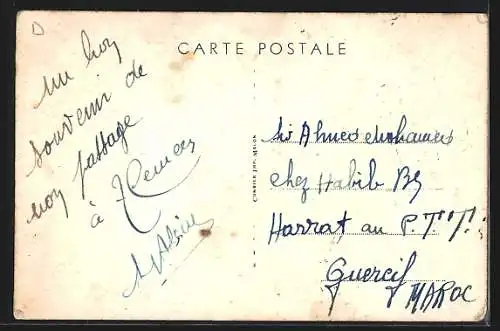 D
CARTE POSTALE
un bon
souvenir de
mon passage
à Tlemcen
Sr Ahmed Mohamed
chez Habib Bg
Harrat au P.T.T.
Guercif
MAROC